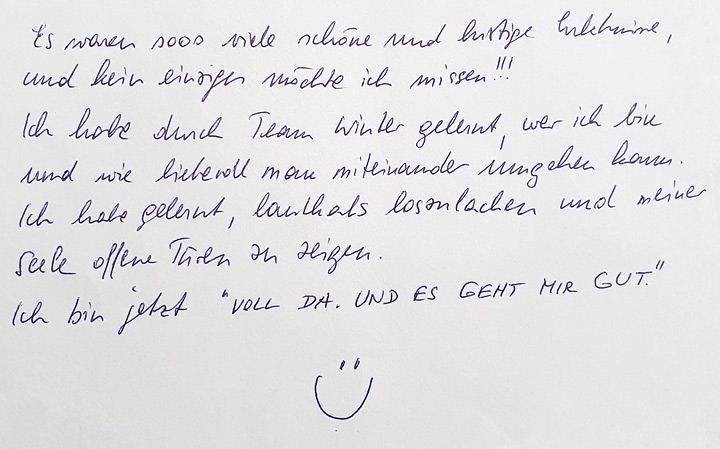 Es waren sooo viele schöne und lustige Erlebnisse,
und kein einziges möchte ich missen!!!
Ich habe durch Team Winter gelernt, wer ich bin
und wie liebevoll man miteinander umgehen kann.
Ich habe gelernt, lauthals loszulachen und meiner
Seele offene Türen zu zeigen.
Ich bin jetzt "VOLL DA. UND ES GEHT MIR GUT."